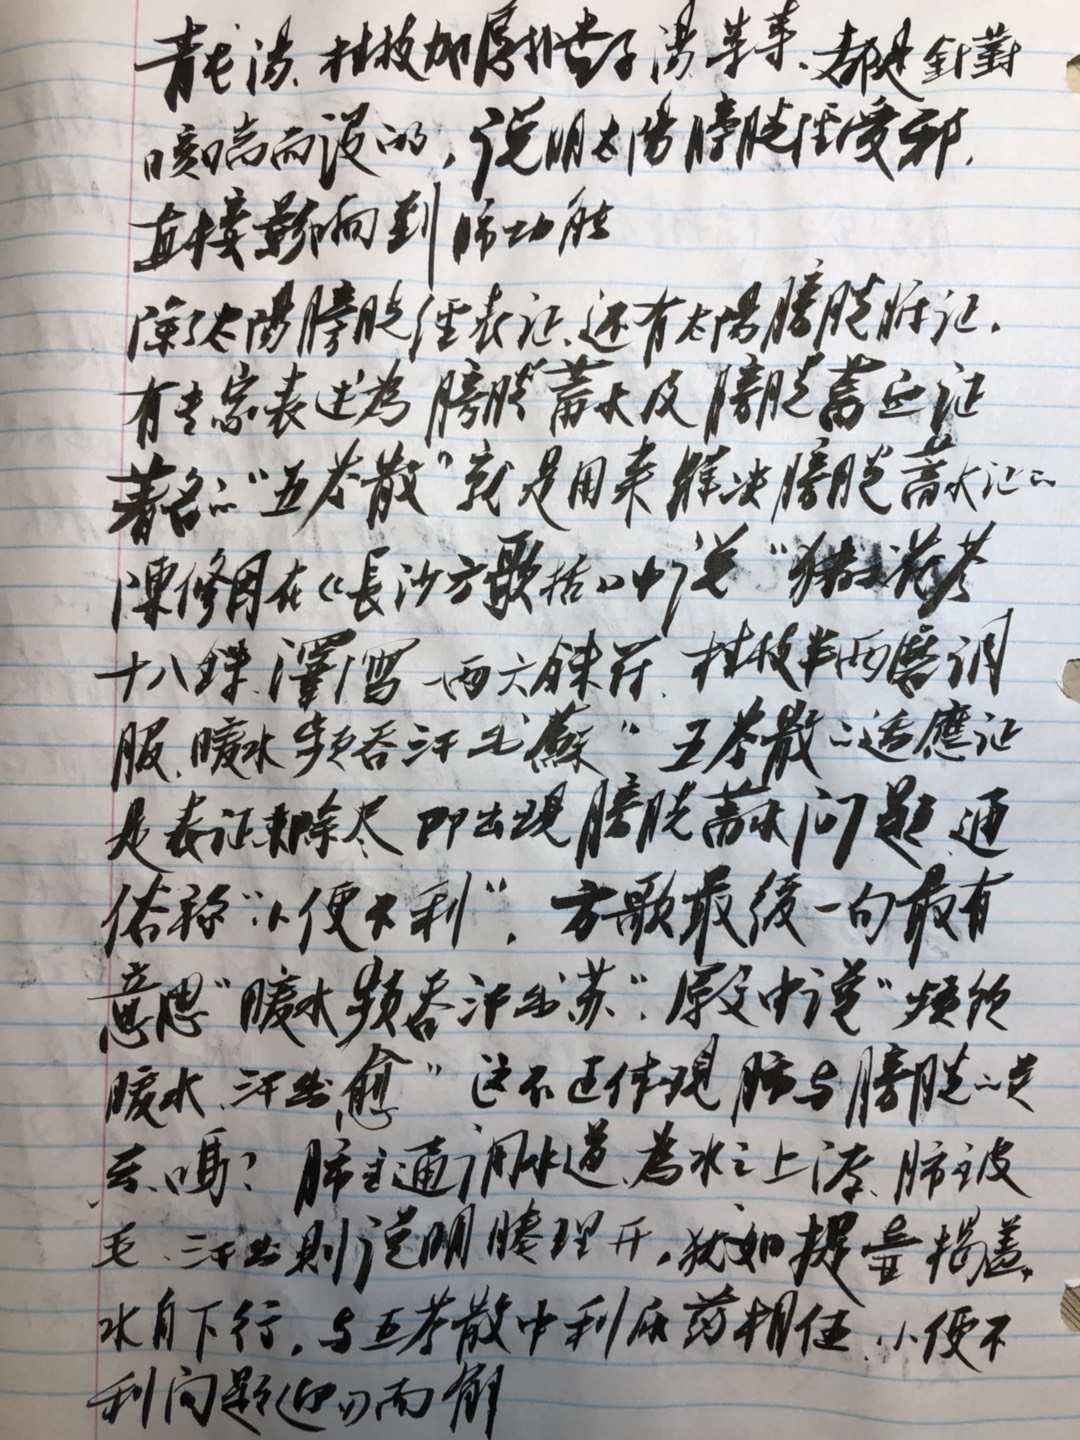 青龙汤、桂枝加厚朴杏子汤等等、都是針對
咳喘而设的，说明太阳膀胱经受邪，
直接影响到肺功能
除了太陽膀胱经表证、还有太陽膀胱腑证。
有专家表述為膀胱“蓄水及膀胱蓄血证
著名的“五苓散”就是用来解决膀胱蓄水证的
陳修園在《長沙方歌括》中说“猪术茯苓
十八銖、澤瀉一両六銖符、桂枝半両磨调
服、暖水频吞汗出蘇”五苓散的适應证
是表证未除尽即出现膀胱蓄水问题通
俗称“小便不利”。方歌最後一句最有
意思“暖水频吞汗出苏”原文中说“频饮
暖水、汗出愈”这不正体现肺与膀胱的关
系嗎？肺主通调水道、為水之上源、肺主皮
毛、汗出則说明腠理开，犹如提壶揭蓋，
水自下行，与五苓散中利尿药相伍、小便不
利问题迎刃而解